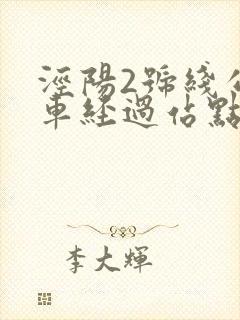 涇陽2號綫公
車經過佔點
李大輝